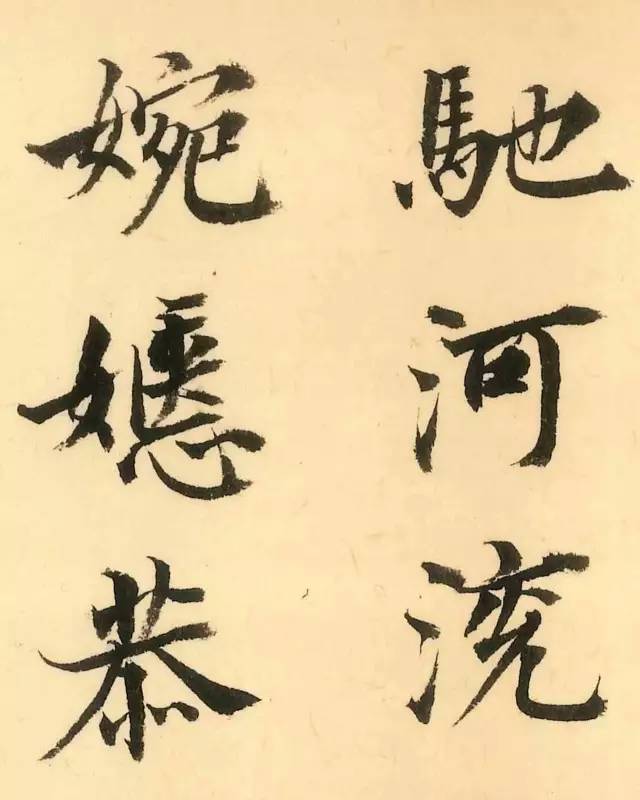 馳河渷
婉嫕恭